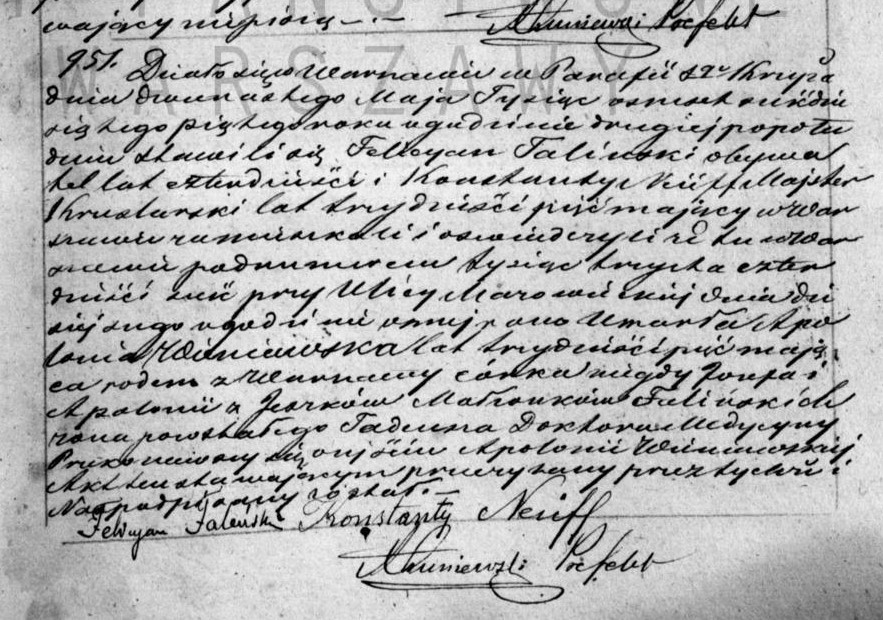 wający niepiszą –·–
Prefekt
WARSZAWY
951. Działo się w Warszawie w Parafii Sgo Krzyża
dnia dwunastego Maja Tysiąc osmset sześćdzie
siątego piątego roku o godzinie drugiej popołu
dniu stawili się Felicyan Faliński obywa
tel lat czterdzieści i Konstanty Neüff Majster
lat trzydzieści pięć mający w War
szawie zamieszkali i oswiadczyli że tu w War
szawie pod numerem tysiąc trzysta czter
dzieści sześć przy Ulicy Mazowieckiej dnia dzi
siejszego o godzinie osmej rano Umarła Apo
lonia Wiśniewska lat trzydzieści pięć mają
ca rodem z Warszawy corka niegdy Jozefa i
Apolonii z Małżonków Falińskich
żona pozostałego Tadeusza Doktora Medycyny
Przekonawszy się o zejściu Apolonii Wiśniewskiej
Akt ten stawającym przeczytany przez tychże i
Nas podpisany został.–
Felicyan Faleński Konstanty Neüff
Prefekt